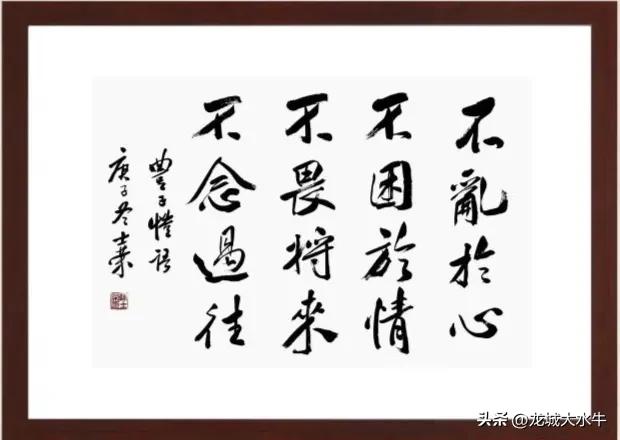 不亂於心
不困於情
不畏將來
不念過往
豐子愷語
庚子冬士棄
头条 @龙城大水牛